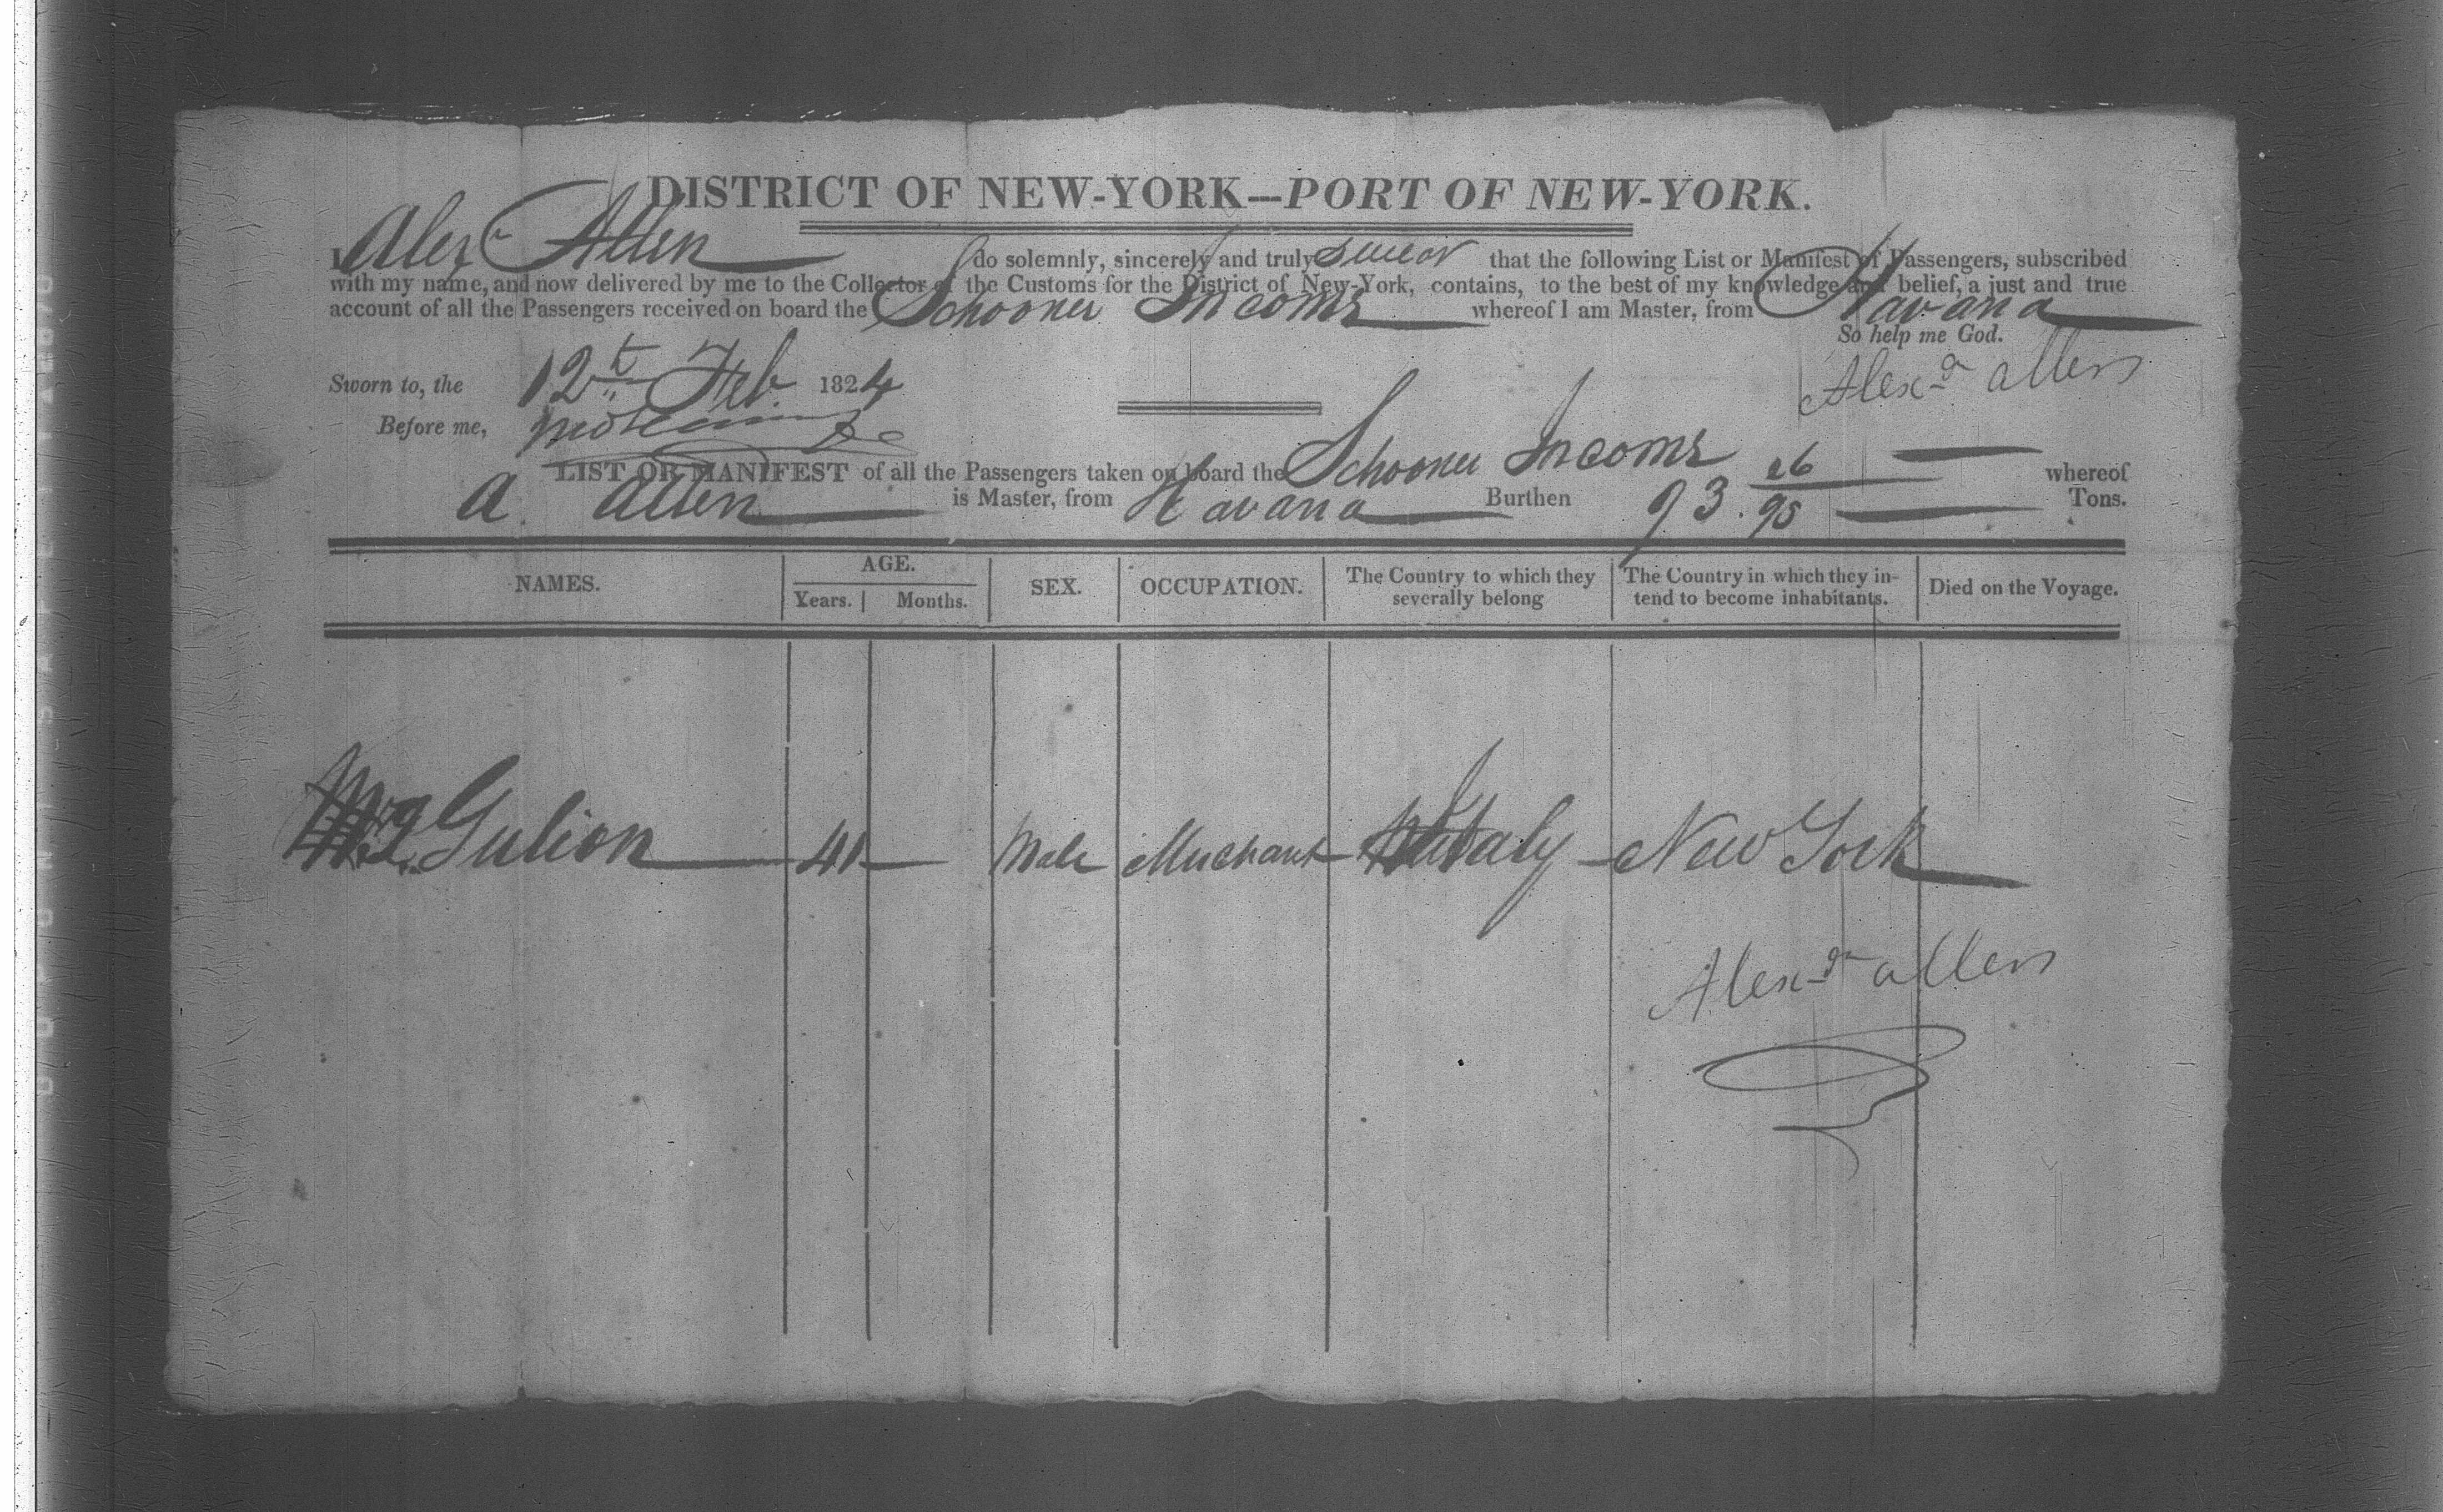 DISTRICT OF NEW-YORK—PORT OF NEW-YORK.
I Alexr Allen do solemnly, sincerely and truly swear that the following List or Manifest of Passengers, subscribed
with my name, and now delivered by me to the Collector of the Customs for the District of New-York, contains, to the best of my knowledge and belief, a just and true
account of all the Passengers received on board the Schooner Income whereof I am Master, from Havana
So help me God.
Sworn to, the 12th Feb 1824
Alexdr allen
Before me,
LIST OR MANIFEST of all the Passengers taken on board the Schooner Income whereof
A. Allen is Master, from Havana Burthen 93. 26/95 Tons.
NAMES. AGE. SEX. OCCUPATION. The Country to which they severally belong The Country in which they intend to become inhabitants. Died on the Voyage.
Years. Months.
Gulion 41 Male Merchant Italy New York
Alexdr allen